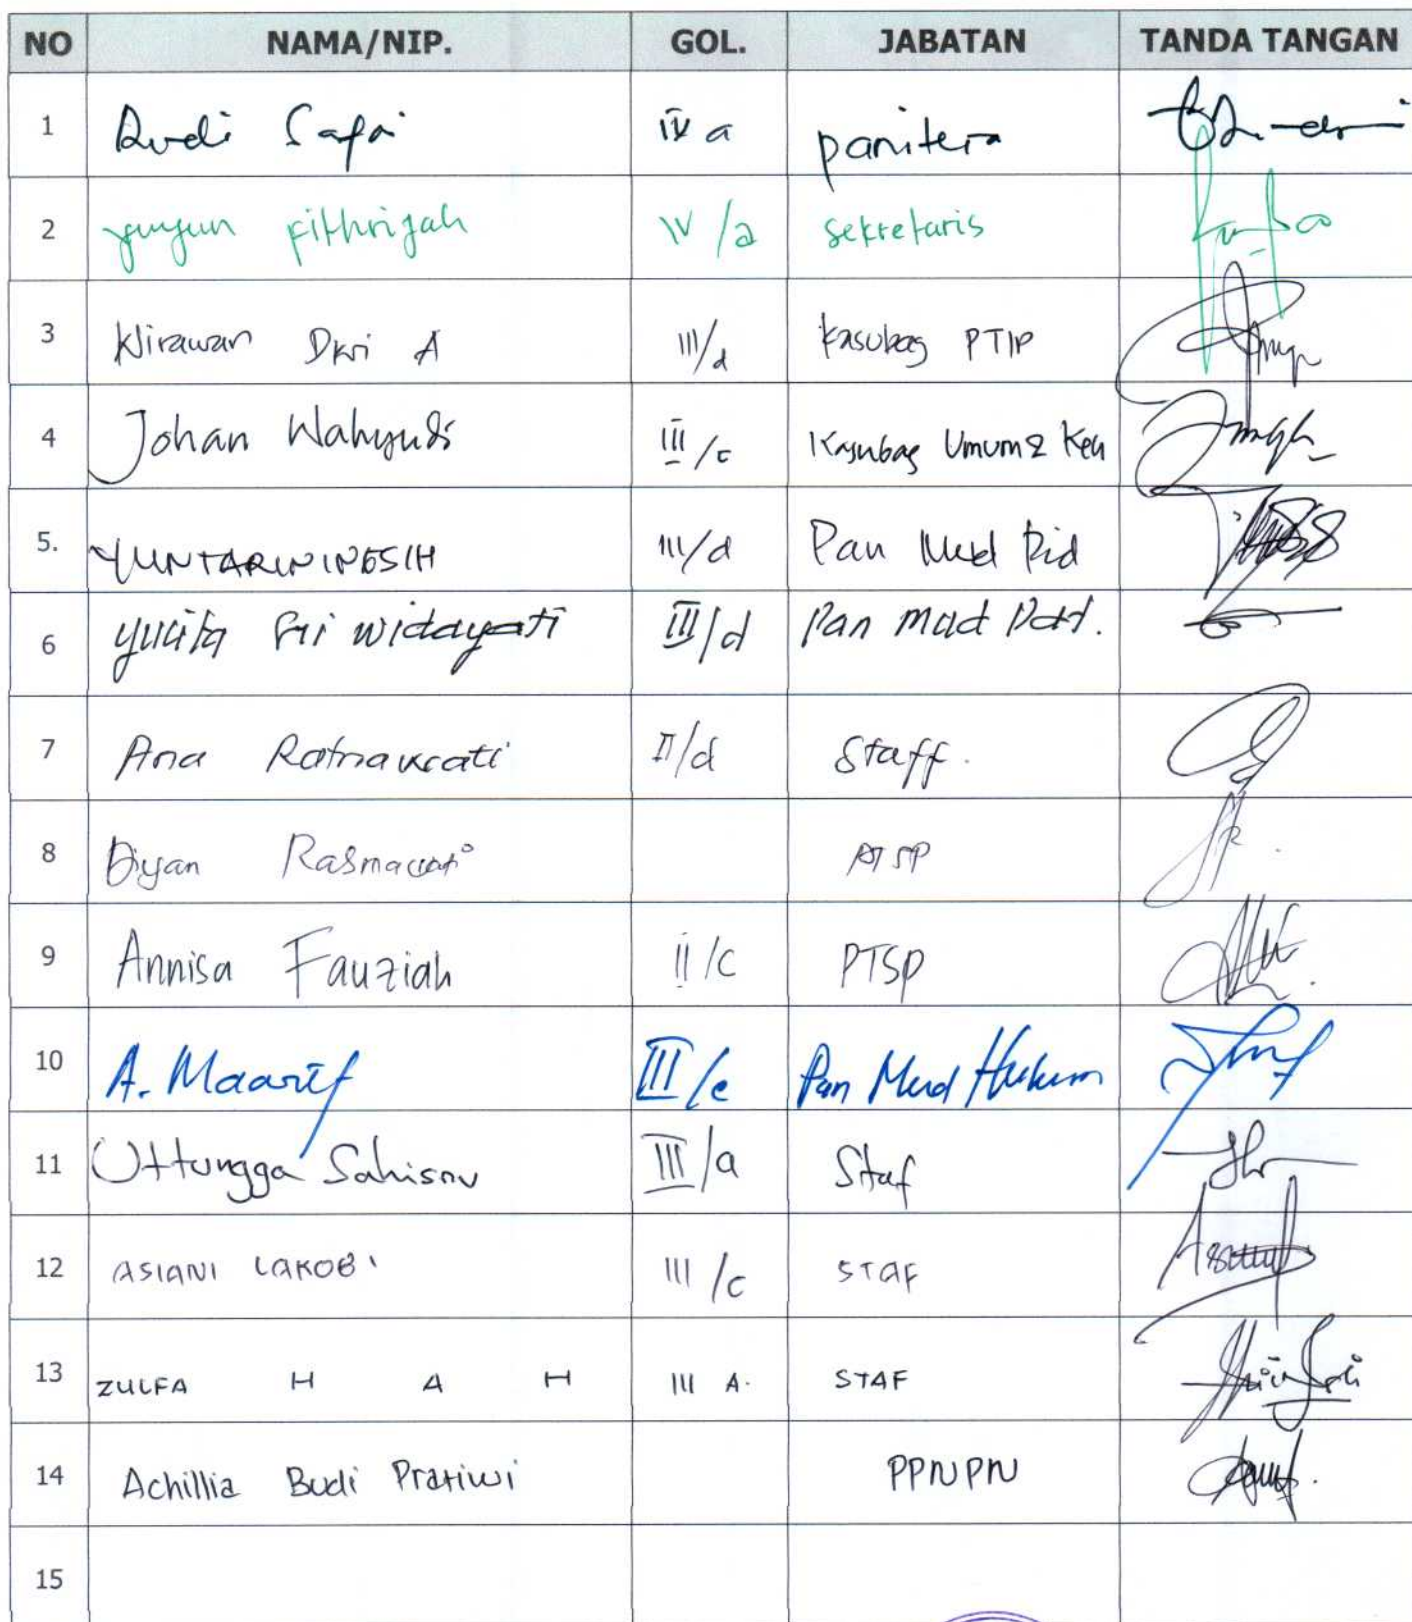 NO NAMA/NIP. GOL. JABATAN TANDA TANGAN
1 Rudi Safa'i IV a panitera
2 yuyun fithriyah IV/a sekretaris
3 Wirawan Dwi A III/d Kasubag PTIP
4 Johan Wahyudi III/c Kasubag Umum & Keu
5. YUNTARWININGSIH III/d Pan Mud Pid
6 yulita Sri widayati III/d Pan mud Pdt.
7 Ana Ratnawati II/d Staff.
8 Diyan Rasmawati PTSP
9 Annisa Fauziah II/C PTSP
10 A. Maarif III/c Pan Mud Hukum
11 Uttungga Sahisnu III/a Staf
12 ASIANI LAKOBI III/c STAF
13 ZULFA H A H III A. STAF
14 Achillia Budi Pratiwi PPNPN
15